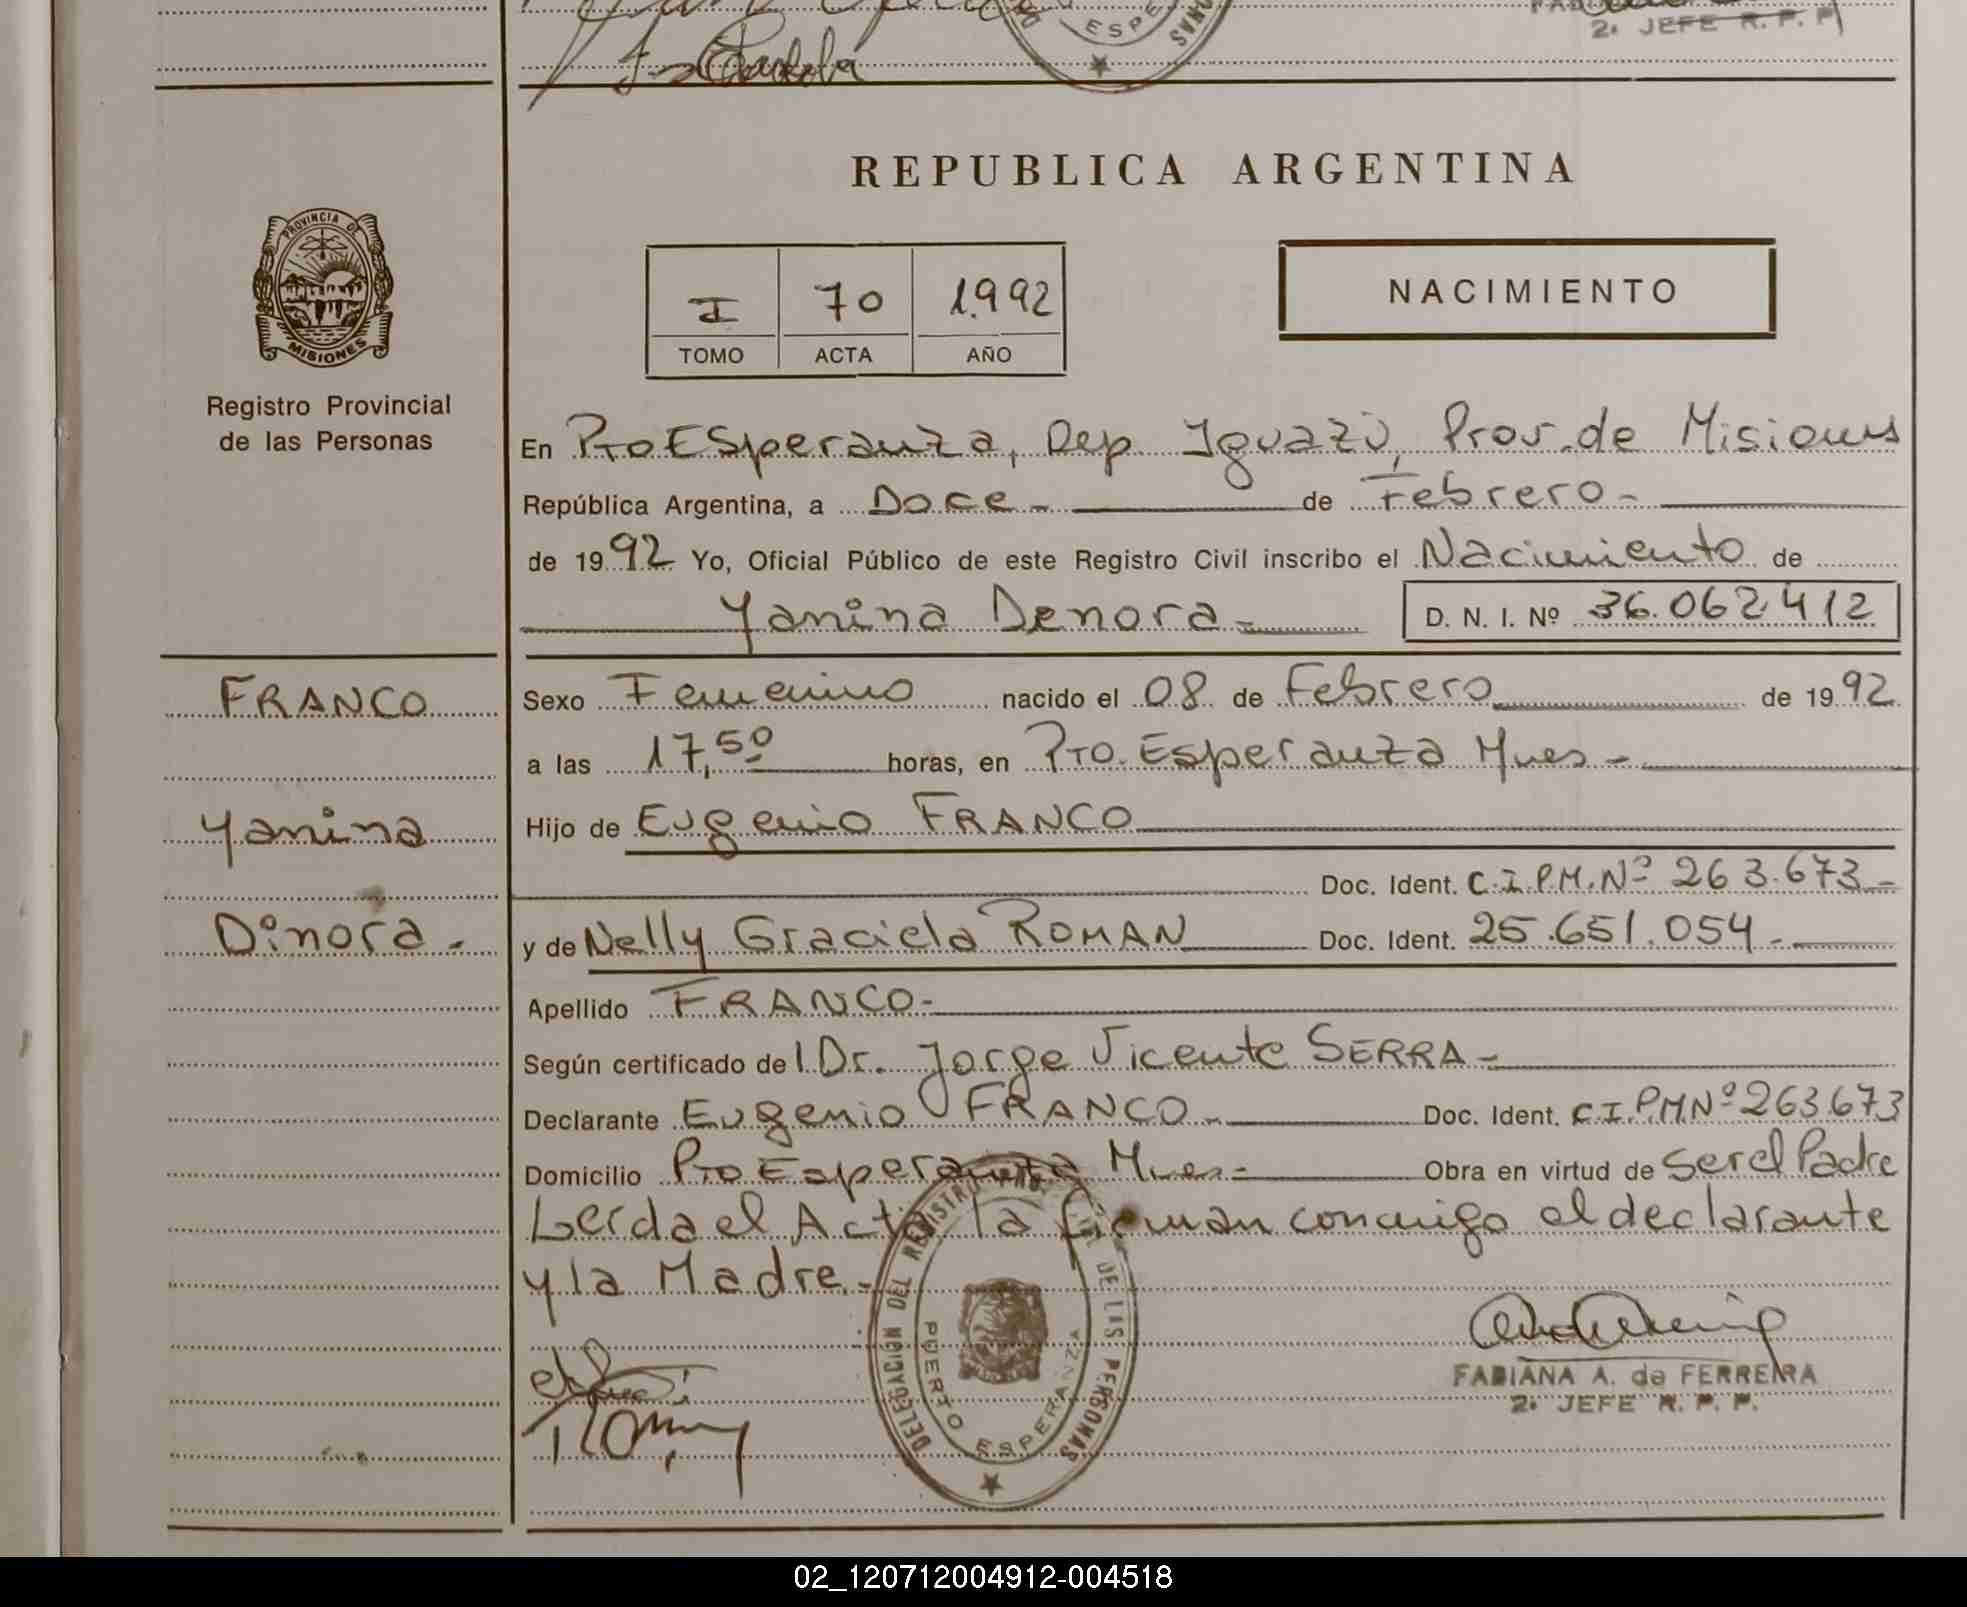 2º JEFE R. P. P.
REPUBLICA ARGENTINA
PROVINCIA DE
MISIONES
Registro Provincial
de las Personas
I 70 1.992
TOMO ACTA AÑO
NACIMIENTO
En Pto Esperanza, Dep. Iguazú, Prov. de Misiones
República Argentina, a Doce - de Febrero -
de 1992 Yo, Oficial Público de este Registro Civil inscribo el Nacimiento de
Yanina Denora - D. N. I. Nº 36.062.412
FRANCO
Yanina
Dinora.-
Sexo Femenino nacido el 08 de Febrero de 1992
a las 17,50 horas, en Pto. Esperanza Mnes -
Hijo de Eugenio FRANCO
Doc. Ident. C.I.P.M.Nº 263.673 -
y de Nelly Graciela ROMAN Doc. Ident. 25.651.054 -
Apellido FRANCO -
Según certificado del Dr. Jorge Vicente SERRA -
Declarante Eugenio FRANCO - Doc. Ident. C.I.P.M.Nº 263.673
Domicilio Pto Esperanza Mnes - Obra en virtud de Ser el Padre
Leida el Acta la firman conmigo el declarante
y la Madre.-
DELEGACION DEL REGISTRO DE LAS PERSONAS
PUERTO ESPERANZA
FABIANA A. de FERREIRA
2º JEFE R. P. P.
02_120712004912-004518